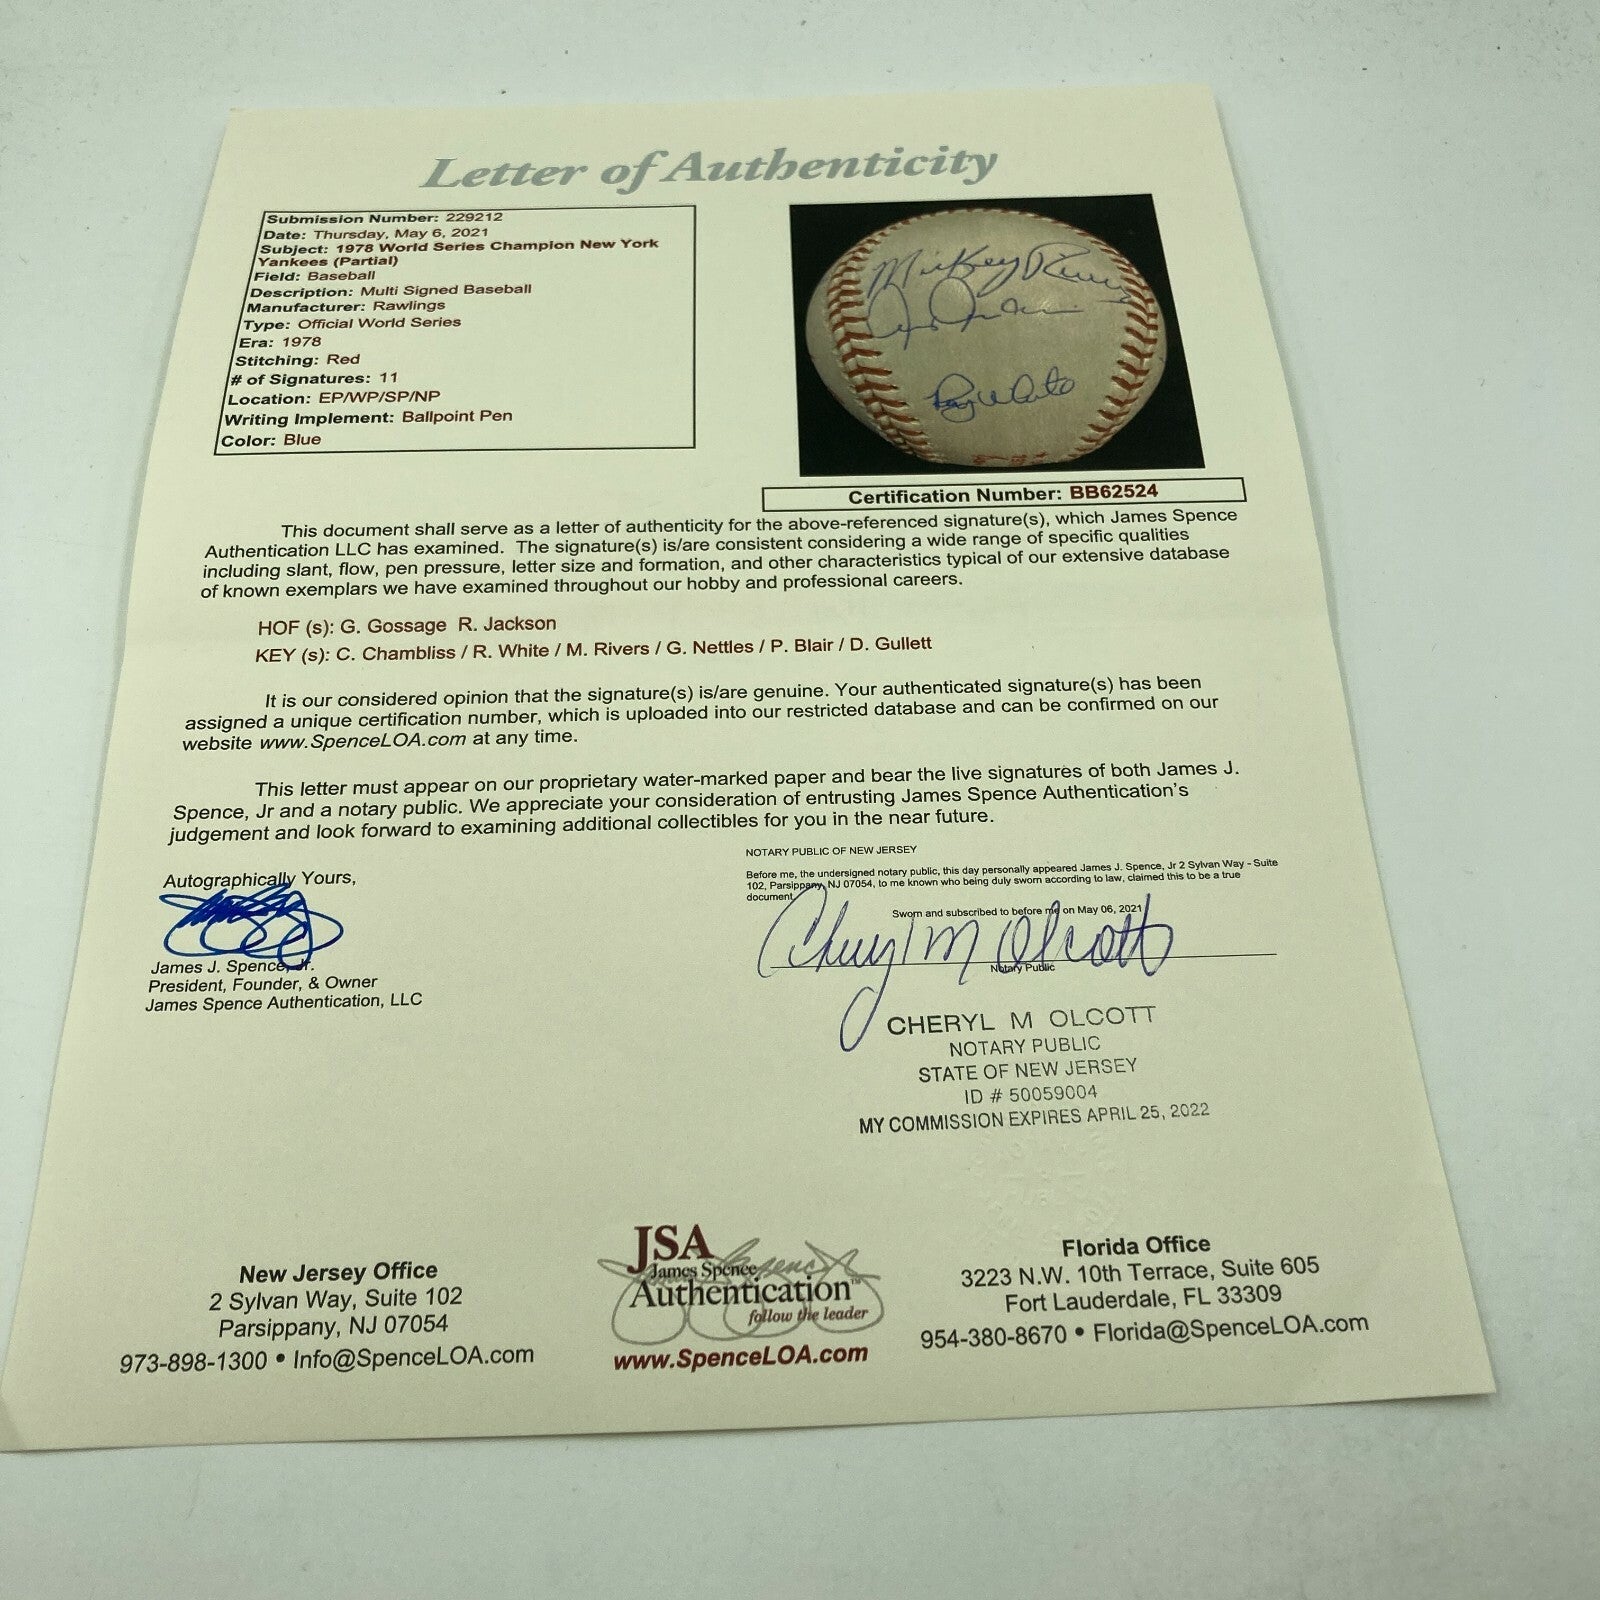 Letter of Authenticity
Submission Number: 229212
Date: Thursday, May 6, 2021
Subject: 1978 World Series Champion New York
Yankees (Partial)
Field: Baseball
Description: Multi Signed Baseball
Manufacturer: Rawlings
Type: Official World Series
Era: 1978
Stitching: Red
# of Signatures: 11
Location: EP/WP/SP/NP
Writing Implement: Ballpoint Pen
Color: Blue
Mickey Rivers
Roy White
Certification Number: BB62524
This document shall serve as a letter of authenticity for the above-referenced signature(s), which James Spence
Authentication LLC has examined. The signature(s) is/are consistent considering a wide range of specific qualities
including slant, flow, pen pressure, letter size and formation, and other characteristics typical of our extensive database
of known exemplars we have examined throughout our hobby and professional careers.
HOF (s): G. Gossage R. Jackson
KEY (s): C. Chambliss / R. White / M. Rivers / G. Nettles / P. Blair / D. Gullett
It is our considered opinion that the signature(s) is/are genuine. Your authenticated signature(s) has been
assigned a unique certification number, which is uploaded into our restricted database and can be confirmed on our
website www.SpenceLOA.com at any time.
This letter must appear on our proprietary water-marked paper and bear the live signatures of both James J.
Spence, Jr and a notary public. We appreciate your consideration of entrusting James Spence Authentication's
judgement and look forward to examining additional collectibles for you in the near future.
Autographically Yours,
James J. Spence, Jr.
President, Founder, & Owner
James Spence Authentication, LLC
NOTARY PUBLIC OF NEW JERSEY
Before me, the undersigned notary public, this day personally appeared James J. Spence, Jr 2 Sylvan Way - Suite
102, Parsippany, NJ 07054, to me known who being duly sworn according to law, claimed this to be a true
document.
Sworn and subscribed to before me on May 06, 2021
Cheryl M Olcott
Notary Public
CHERYL M OLCOTT
NOTARY PUBLIC
STATE OF NEW JERSEY
ID # 50059004
MY COMMISSION EXPIRES APRIL 25, 2022
New Jersey Office
2 Sylvan Way, Suite 102
Parsippany, NJ 07054
973-898-1300 • Info@SpenceLOA.com
JSA
James Spence
Authentication™
follow the leader
www.SpenceLOA.com
Florida Office
3223 N.W. 10th Terrace, Suite 605
Fort Lauderdale, FL 33309
954-380-8670 • Florida@SpenceLOA.com